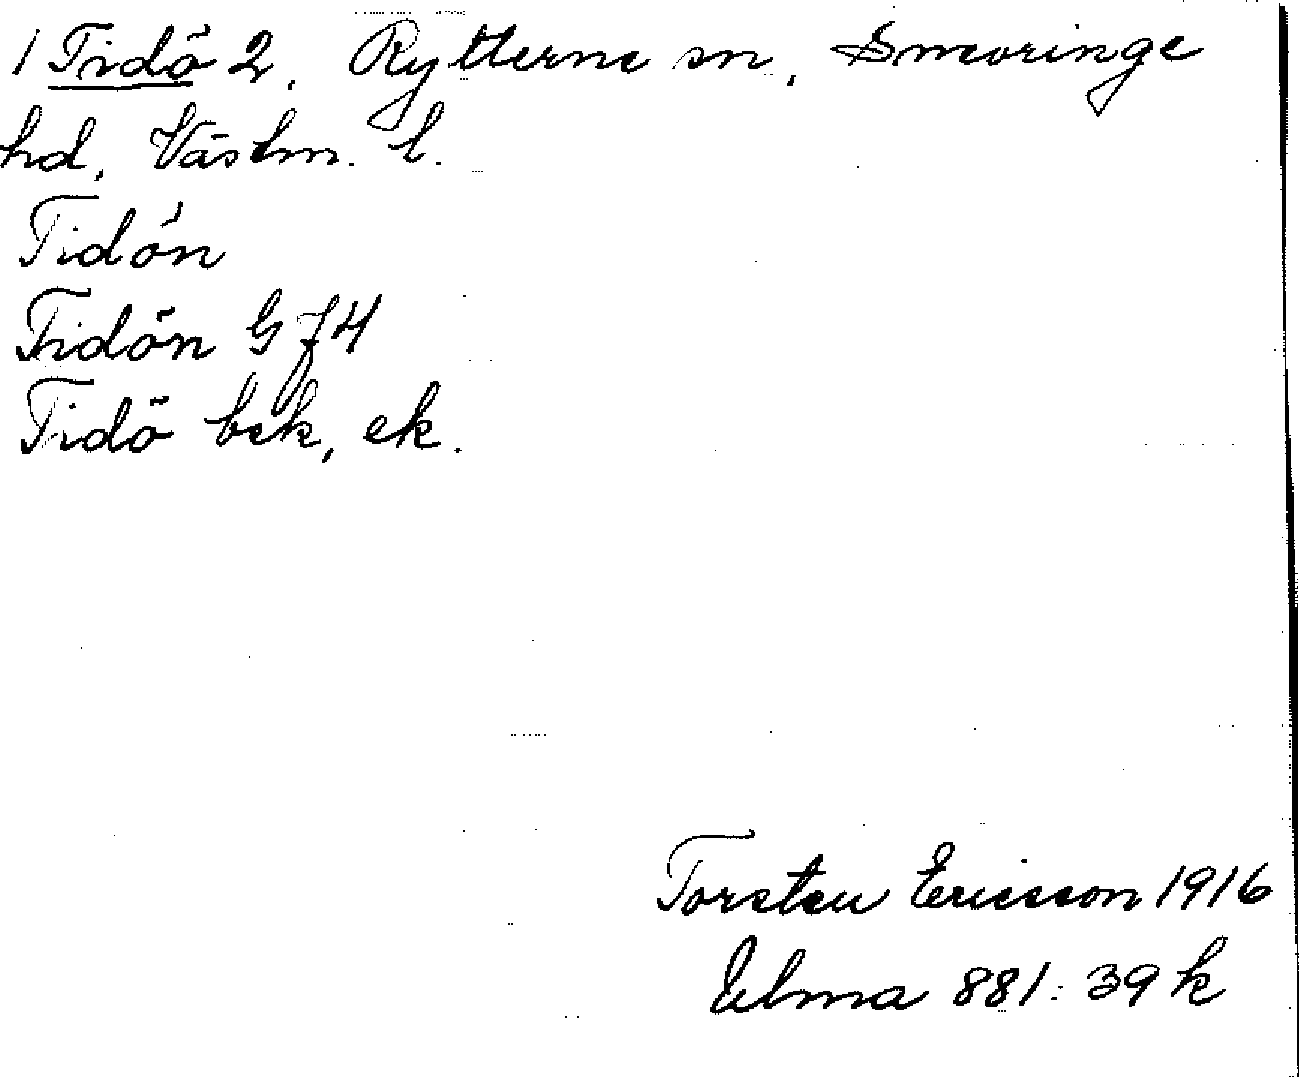 1 Tidö 2, Rytterne sn, Snevringe
hd, Västm. l.
Tidön
Tidön G J4
Tidö bek, ek.
Torsten Ericsson 1916
Ulma 881:39 k